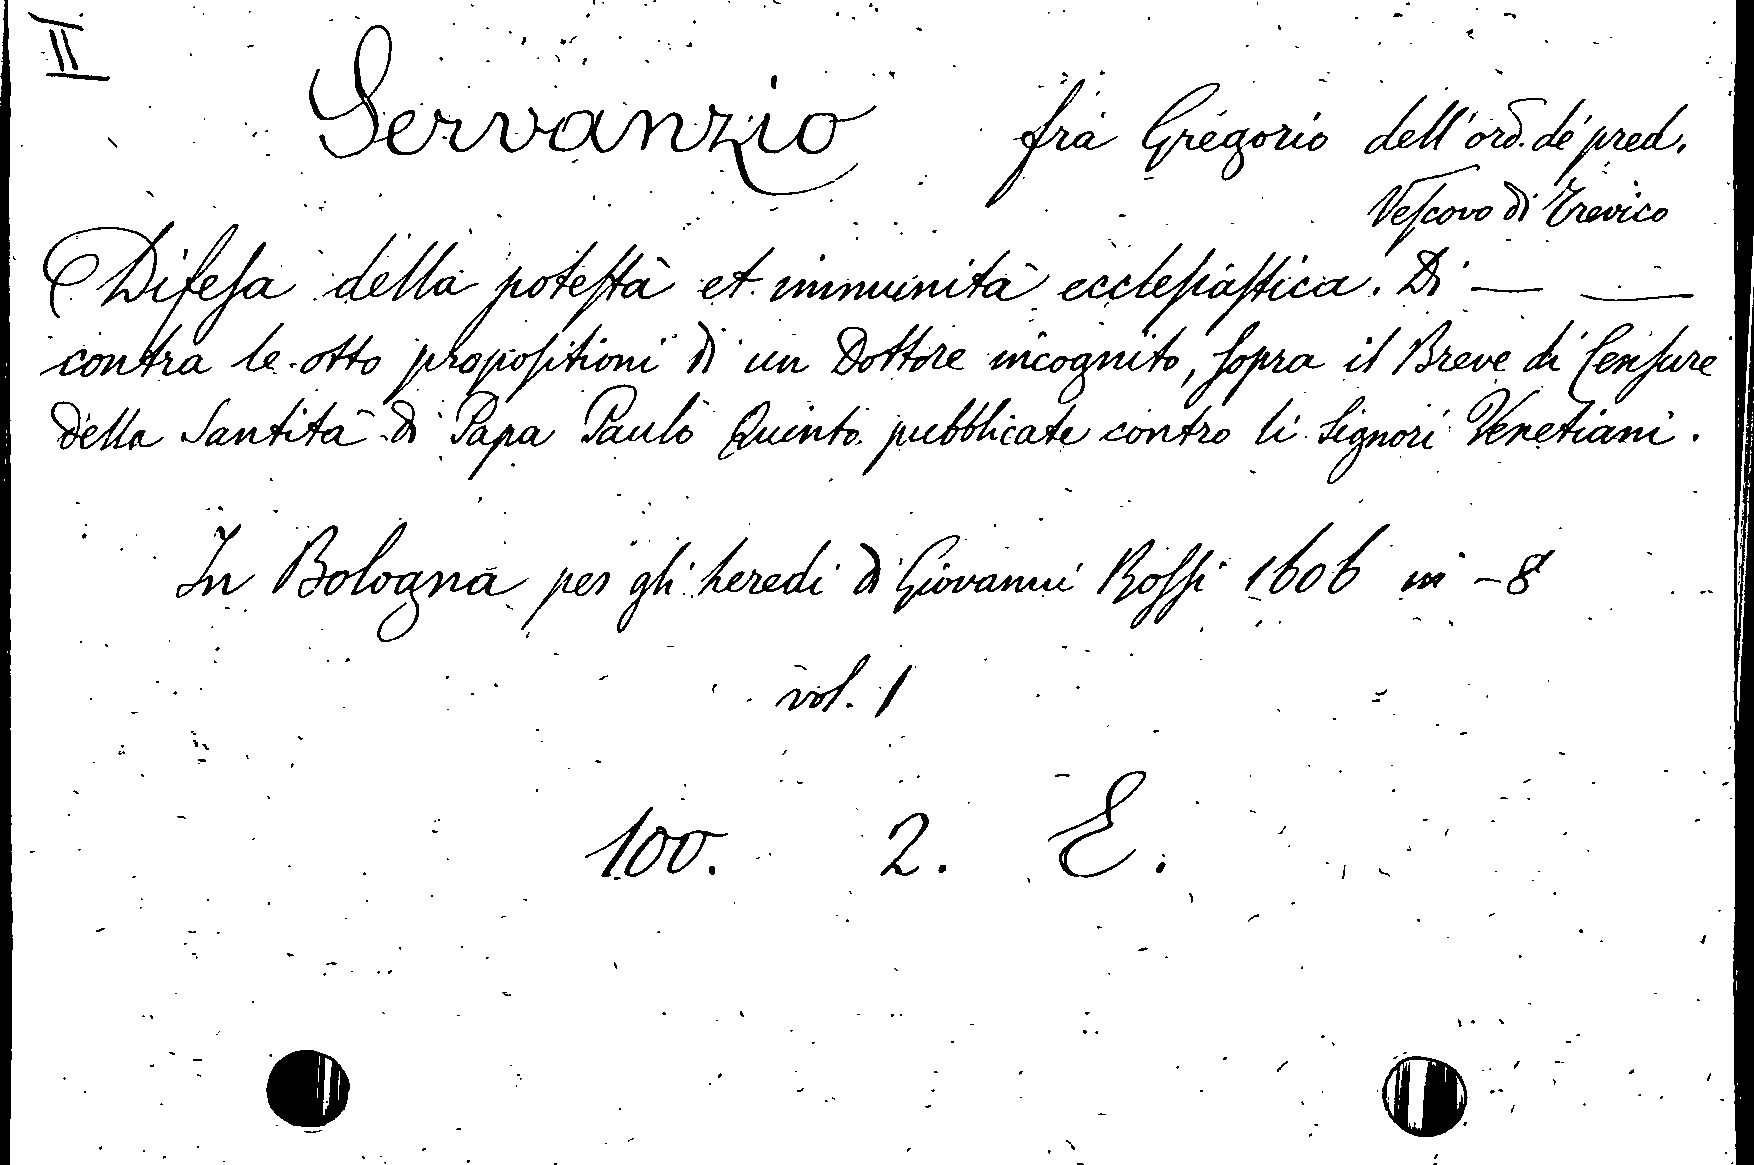 II
Servanzio fra Gregorio dell'ord. de' pred.
Veſcovo di Trevico
Difeſa della poteſtà et immunità eccleſiaſtica. Di — —
contra le otto propoſitioni di un Dottore incognito, ſopra il Breve di Cenſure
della Santità di Papa Paulo Quinto pubblicate contro li Signori Venetiani.
In Bologna per gli heredi di Giovanni Roſſi 1606 in -8
vol. 1
100. 2. E.